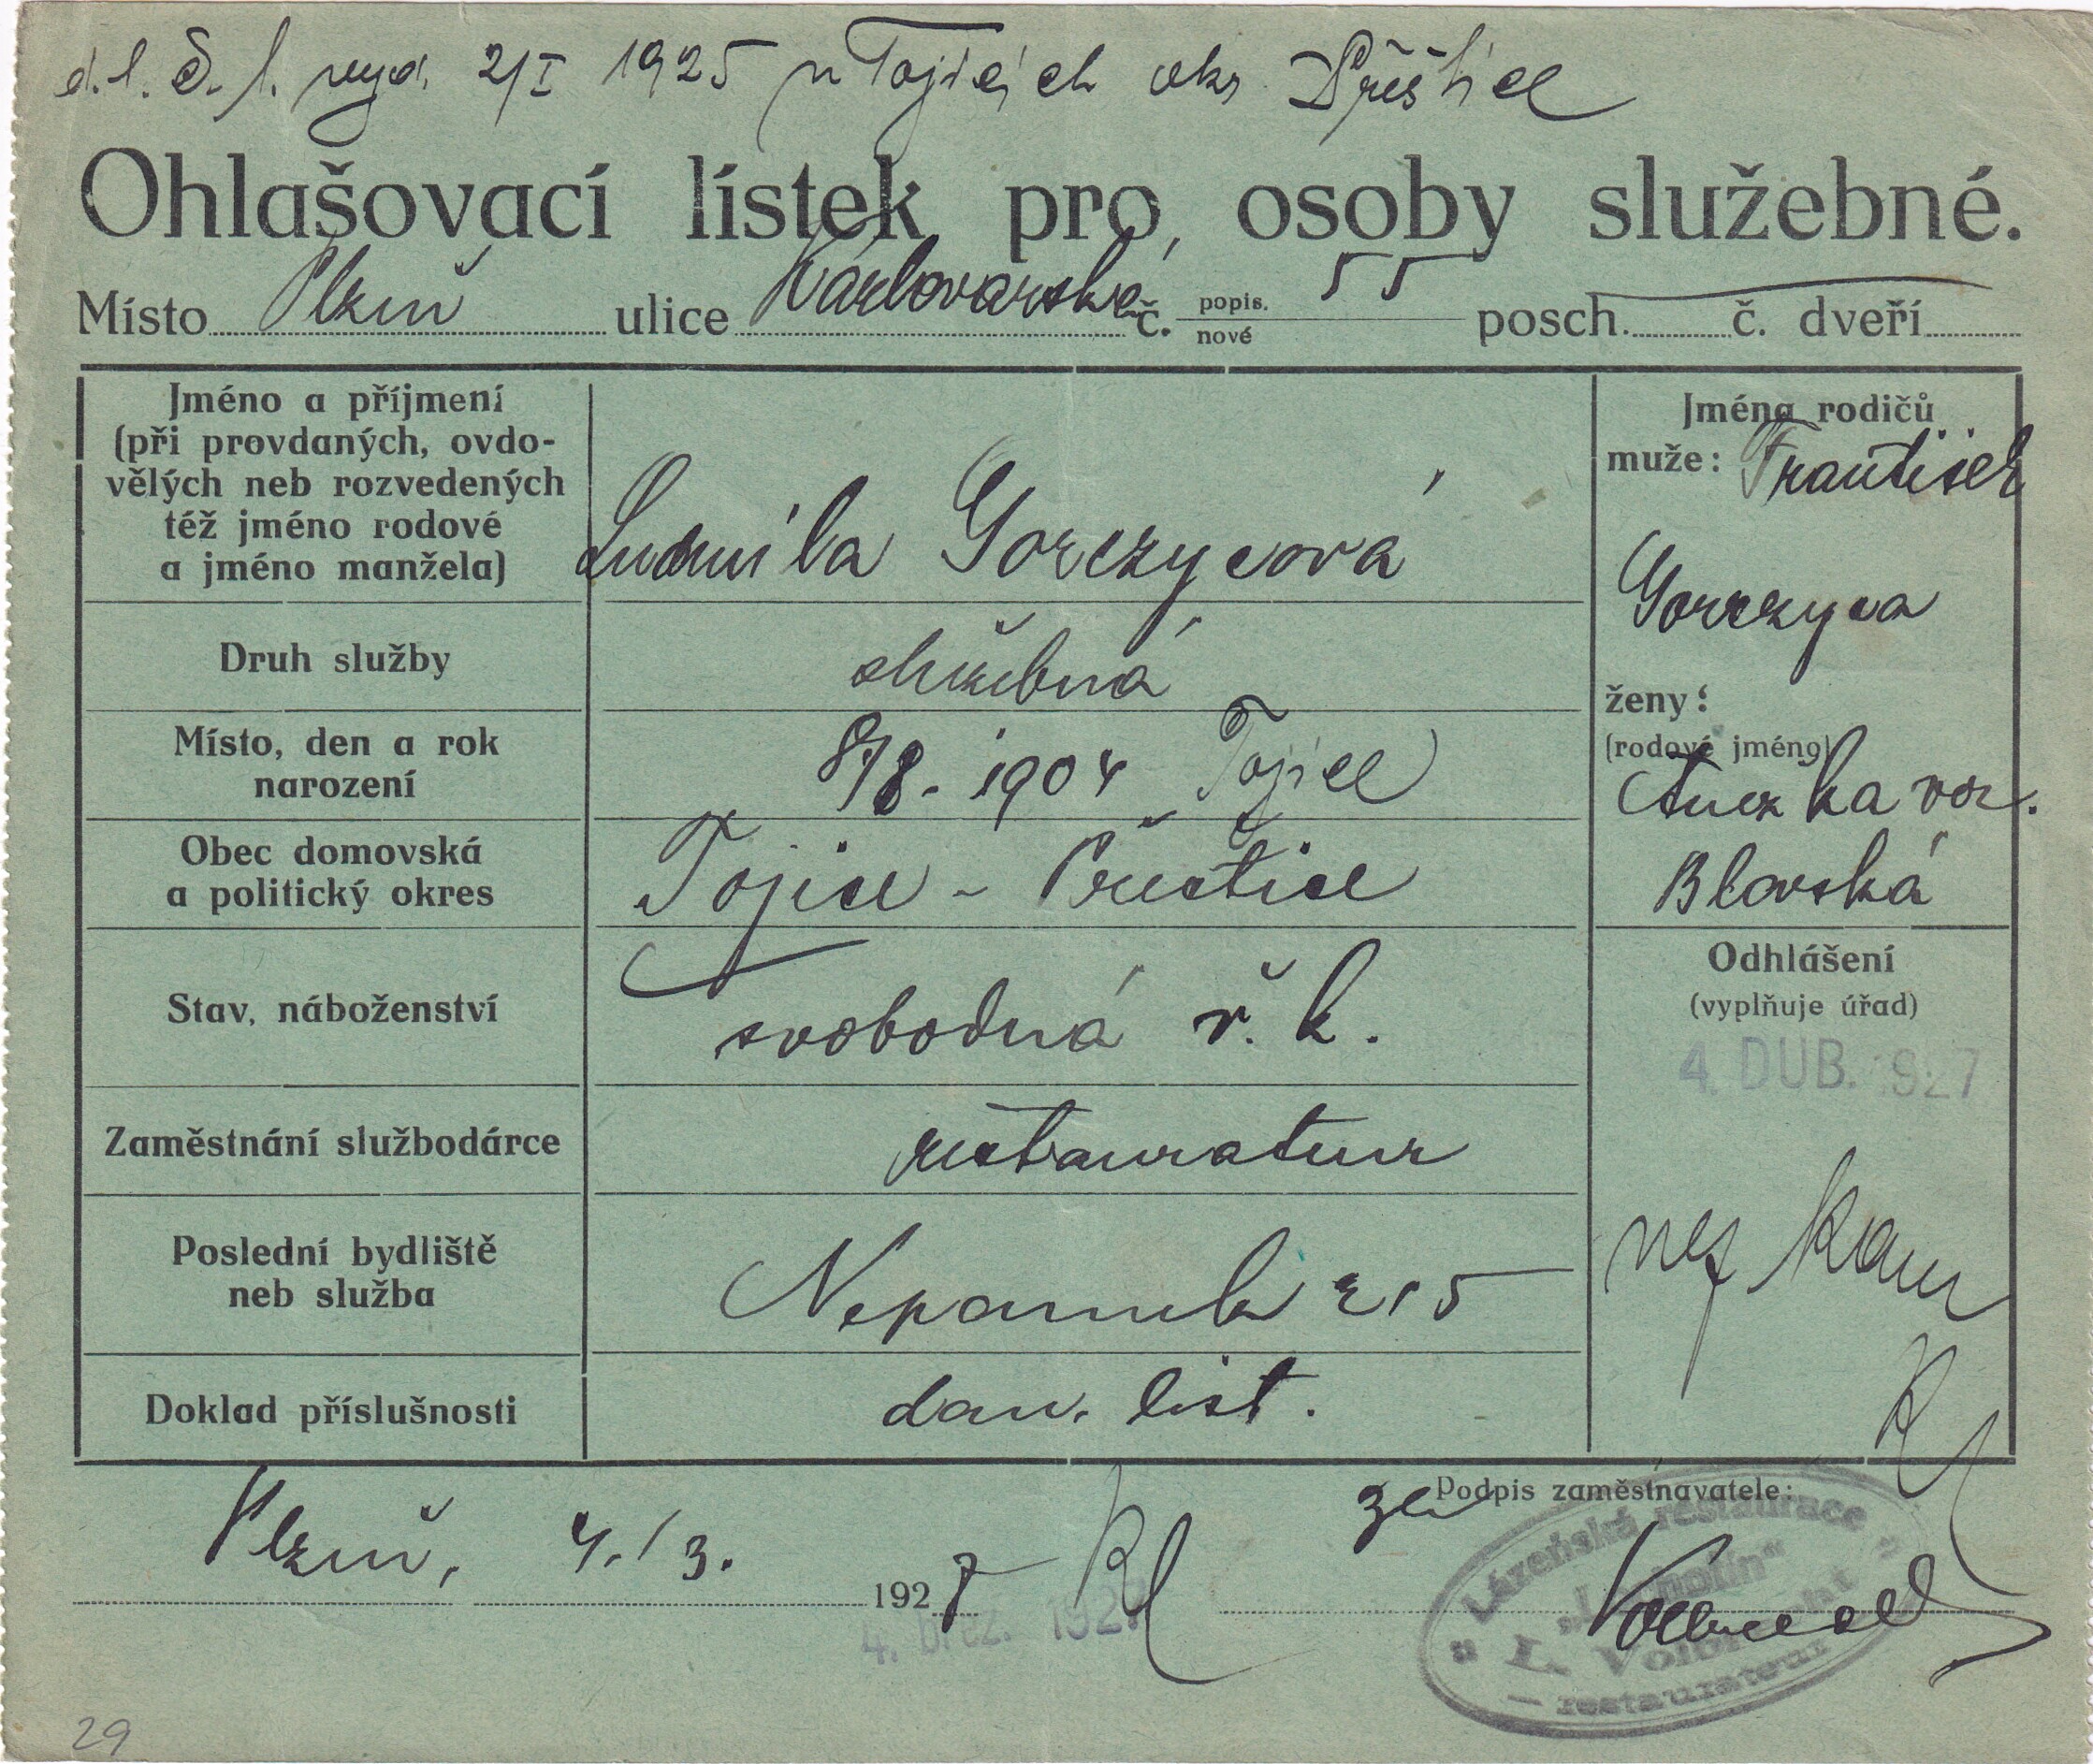 d. l. č. 1. vyd. 2/I 1925 v Tojicích okr. Přeštice
Ohlašovací lístek pro osoby služebné.
Místo Plzeň ulice Karlovarská č. popis. 55 posch. č. dveří
nové
Jméno a příjmení
(při provdaných, ovdo-
vělých neb rozvedených
též jméno rodové
a jméno manžela)
Ludmila Gorczycová
Jména rodičů
muže: František
Gorczyca
ženy:
(rodové jméno)
Anežka roz.
Blovská
Druh služby
služebná
Místo, den a rok
narození
8/8. 1904 Tojice
Obec domovská
a politický okres
Tojice - Přeštice
Stav, náboženství
svobodná ř. k.
Odhlášení
(vyplňuje úřad)
4. DUB. 1927
Zaměstnání službodárce
restaurateur
Poslední bydliště
neb služba
Nepomuk 215
Doklad příslušnosti
dom. list.
Plzeň, 4./3. 1927
4. břez. 1927
za Podpis zaměstnavatele:
Lázeňská restaurace
L.
restaurateur
29